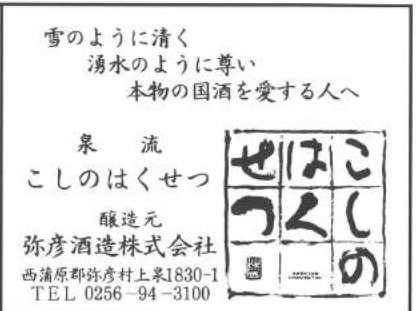 雪のように清く
湧水のように尊い
本物の国酒を愛する人へ
泉 流
こしのはくせつ
醸造元
弥彦酒造株式会社
西蒲原郡弥彦村上泉1830-1
TEL 0256-94-3100
こしの
はく
せつ